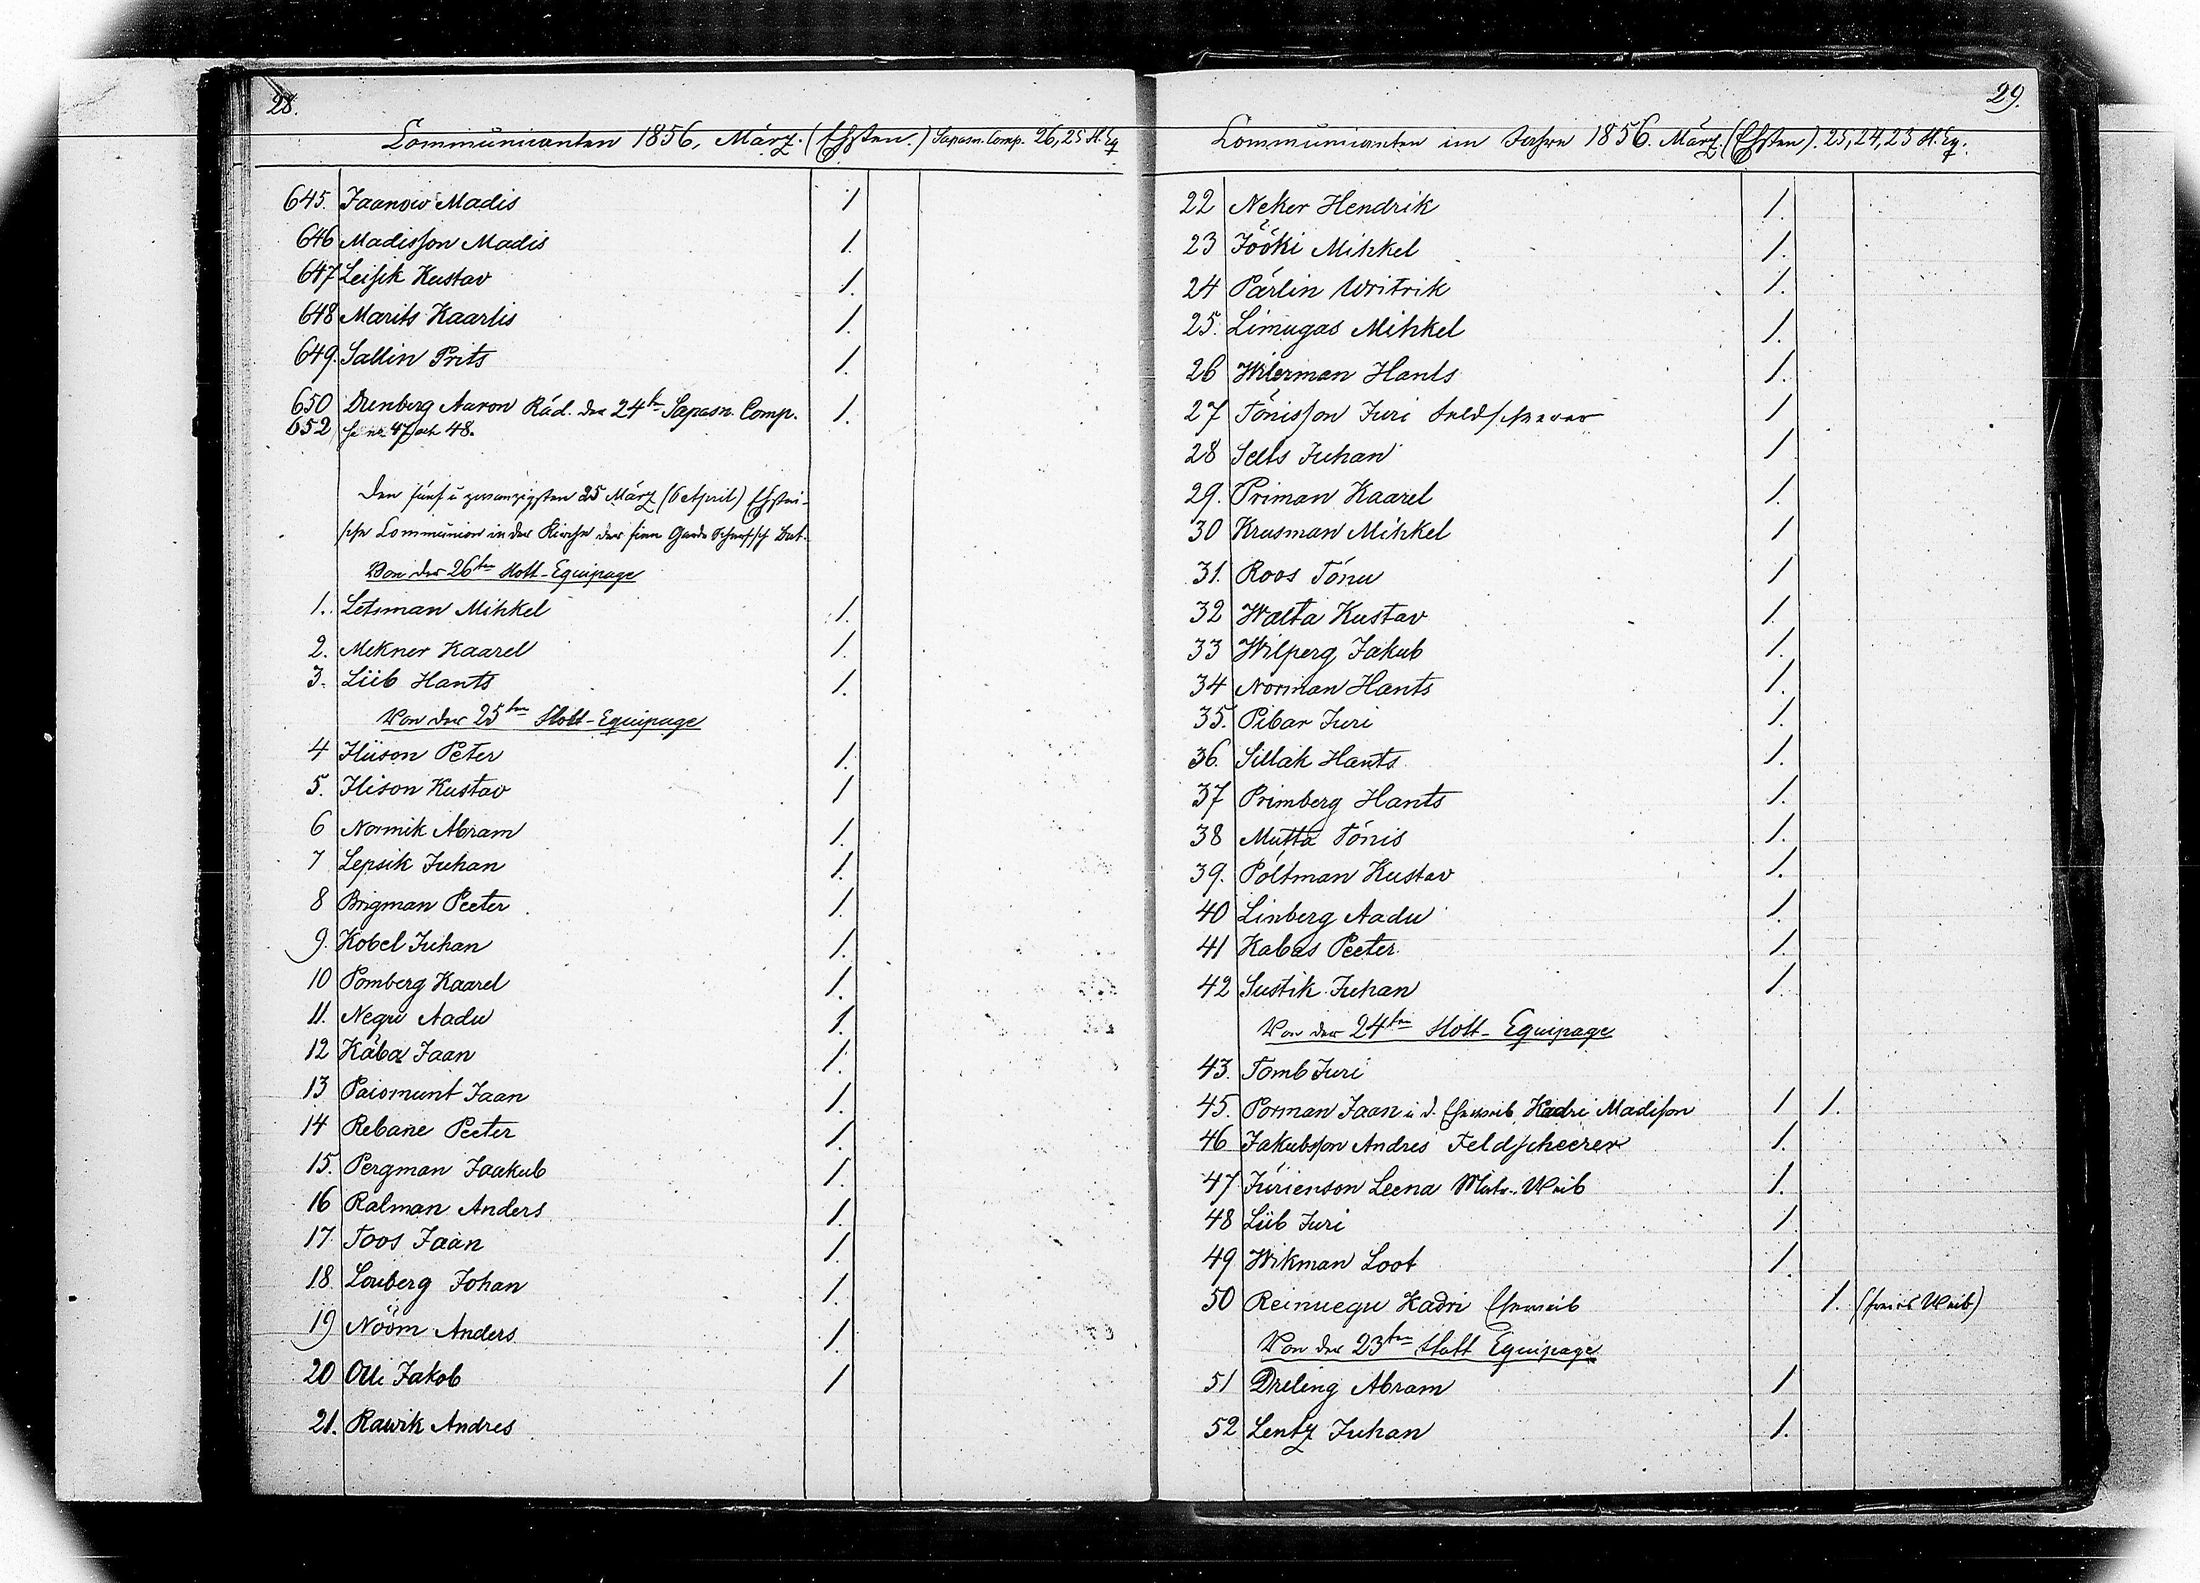 28.
Communicanten 1856, März. (Ehsten.) Sapasn. Comp. 26, 25 Fl. Eq
645. Jaanow Madis 1
646 Madisson Madis 1.
647 Leisik Kustav 1.
648 Marits Kaarlis 1.
649. Sallin Prits 1.
650 Drenberg Aaron Räd. der 24ten Sapasn. Comp. 1.
652 47 48.
Den fünf u zwanzigsten 25 März (6 April) Ehstni-
sche Communion in der Kirche der finn Garde Scharfsch Bat.
Von der 26ten Flott-Equipage
1. Letsman Mihkel 1.
2. Mekner Kaarel 1.
3. Liib Hants 1.
Von der 25ten Flott-Equipage
4 Hiison Peter 1.
5. Hison Kustav 1
6 Normik Abram 1.
7 Lepsik Juhan 1.
8 Brigman Peeter 1.
9. Kobel Juhan 1.
10 Pomberg Kaarel 1.
11. Negu Aadu 1.
12 Käba Jaan 1.
13 Paismunt Jaan 1.
14 Rebane Peeter 1.
15. Pergman Jaakub 1.
16 Ralman Anders 1.
17. Toos Jaan 1.
18. Louberg Johan 1.
19 Nööm Anders 1.
20 Olli Jakob 1
21. Rawik Andres
29.
Communicanten im Jahre 1856. März. (Ehsten). 25, 24, 23 Fl. Eq.
22 Neker Hendrik 1.
23 Jööki Mihkel 1.
24 Pärlin Writrik 1.
25. Limugas Mihkel 1.
26 Wilerman Hants 1.
27 Tönisson Juri Feldscherer 1
28 Selts Juhan 1
29. Priman Kaarel 1.
30 Krusman Mihkel 1
31. Roos Tönu 1
32 Walta Kustav 1.
33 Wilperg Jakub 1.
34 Norman Hants 1.
35. Pibar Juri 1.
36. Sillak Hants 1.
37 Primberg Hants 1.
38 Mutta Tönis 1.
39. Pöltman Kustav 1.
40 Linberg Aadu 1.
41 Kabas Peeter 1.
42 Sustik Juhan 1.
Von der 24ten Flott-Equipage
43. Tomb Juri
45. Porman Jaan u. d. Eheweib Kadri Madison 1 1.
46 Jakubsson Andres Feldscheerer 1.
47 Jürienson Leena Matr. Weib 1.
48 Liib Juri 1
49 Wikman Loot 1.
50 Reinuegu Kadri Eheweib 1. (freies Weib)
Von der 23ten Flott Equipage
51 Dreling Abram 1
52 Lentz Juhan 1.